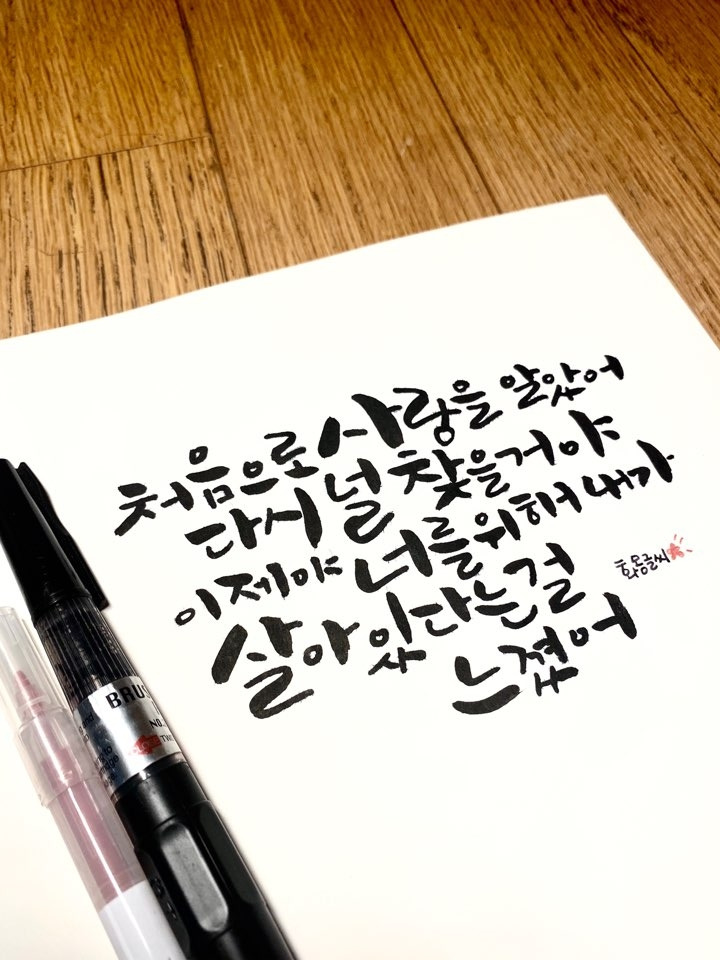 처음으로 사랑을 알았어
다시 널 찾을거야
이제야 너를 위해 내가
살아 있다는 걸
느꼈어
황몽글씨
BRU
NO.
TW